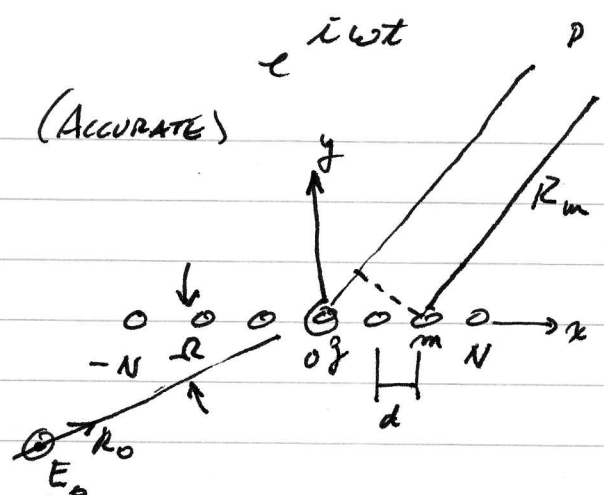 e^{iωt}
P
(ACCURATE)
y
R_m
-N Ω 0 z m N x
d
R_0
E_0